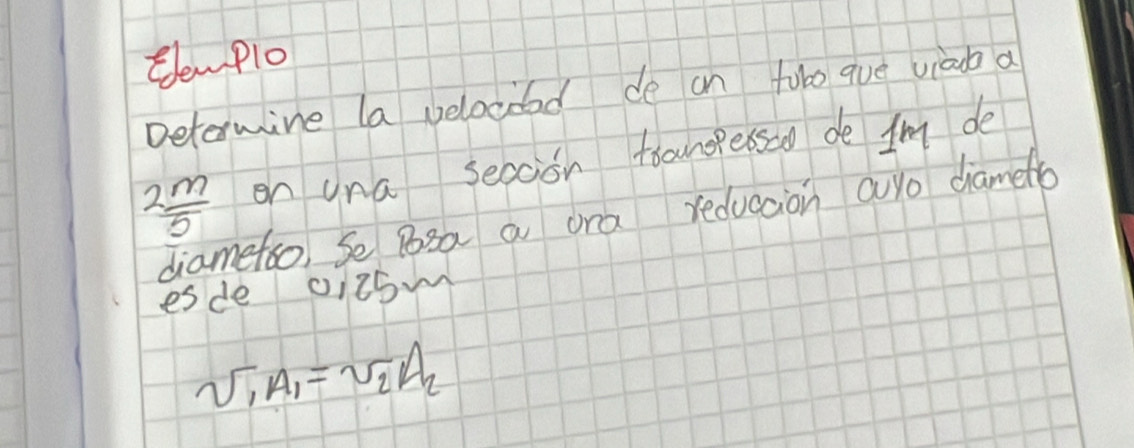 Ejemplo
Determine la velocidad de un tubo que viaja a
2 m/s en una sección transversal de 1m de
diametro, se pasa a una reducción cuyo diametro
es de 0,25m
v₁A₁ = v₂A₂